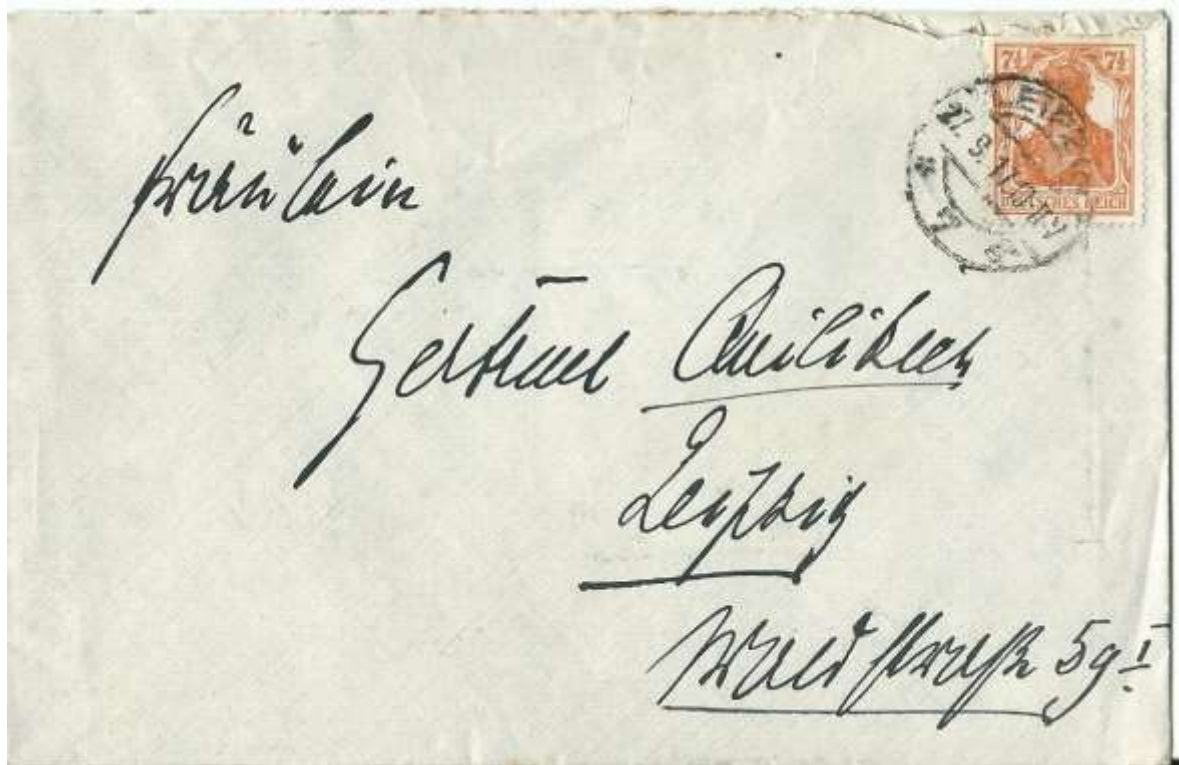 7½ 7½
DEUTSCHES REICH
LEIPZIG
Fräulein
Gertrud
Leipzig
Waldstraße 59 I